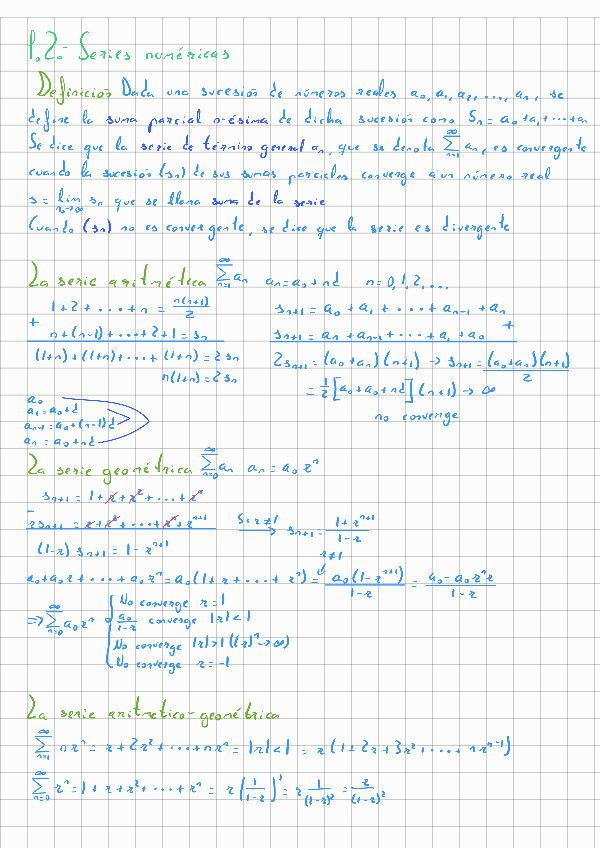 1.2.- Series numéricas
Definición Dada una sucesión de números reales a₀, a₁, a₂, ..., aₙ, se
define la suma parcial n-ésima de dicha sucesión como Sₙ = a₀+a₁+···+aₙ
Se dice que la serie de término general aₙ, que se denota ∑_{n=1}^{∞} aₙ, es convergente
cuando la sucesión (sₙ) de sus sumas parciales converge a un número real
s = lim_{n→∞} sₙ que se llama suma de la serie
Cuando (sₙ) no es convergente, se dice que la serie es divergente
La serie aritmética ∑_{n=1}^{∞} aₙ aₙ = a₀ + nd n = 0, 1, 2, ...
1+2+···+n = n(n+1)/2
+
n+(n-1)+···+2+1 = sₙ
(1+n)+(1+n)+···+(1+n) = 2sₙ
n(1+n) = 2sₙ
sₙ₊₁ = a₀ + a₁ + ··· + aₙ₋₁ + aₙ
sₙ₊₁ = aₙ + aₙ₋₁ + ··· + a₁ + a₀ +
2sₙ₊₁ = (a₀+aₙ)(n+1) → sₙ₊₁ = (a₀+aₙ)(n+1)/2
= 1/2 [a₀+a₀+nd] (n+1) → ∞
no converge
a₀
a₁ = a₀+d
aₙ₋₁ = a₀+(n-1)d
aₙ = a₀+nd
La serie geométrica ∑_{n=0}^{∞} aₙ aₙ = a₀ rⁿ
sₙ₊₁ = 1 + r + r² + ··· + rⁿ
-
rsₙ₊₁ = r + r² + ··· + rⁿ + rⁿ⁺¹
(1-r) sₙ₊₁ = 1 - rⁿ⁺¹
Si r≠1 → sₙ₊₁ = (1+rⁿ⁺¹)/(1-r)
r≠1
a₀+a₀r+···+a₀rⁿ = a₀(1+r+···+rⁿ) = a₀(1-rⁿ⁺¹)/(1-r) = (a₀-a₀rⁿr)/(1-r)
⇒ ∑_{n=0}^{∞} a₀rⁿ
No converge r = 1
a₀/(1-r) converge |r|<1
No converge |r|>1 ((r)ⁿ→∞)
No converge r = -1
La serie aritmetico-geométrica
∑_{n=1}^{∞} nrⁿ = r+2r²+···+nrⁿ = |r|<1 = r(1+2r+3r²+···+nrⁿ⁻¹)
∑_{n=0}^{∞} rⁿ = 1+r+r²+···+rⁿ = r(1/(1-r))' = r 1/(1-r)² = r/(1-r)²